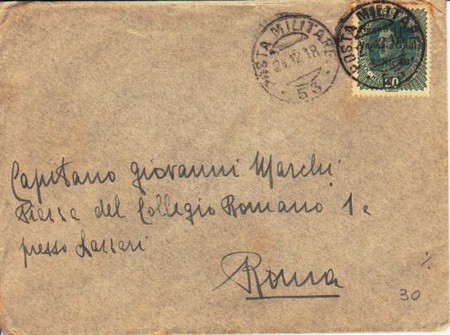 POSTA MILITARE
24.12.18
53
POSTA MILITARE
53
Capitano Giovanni Marchi
Piazza del Collegio Romano 1a
presso Lazzari
Roma
30